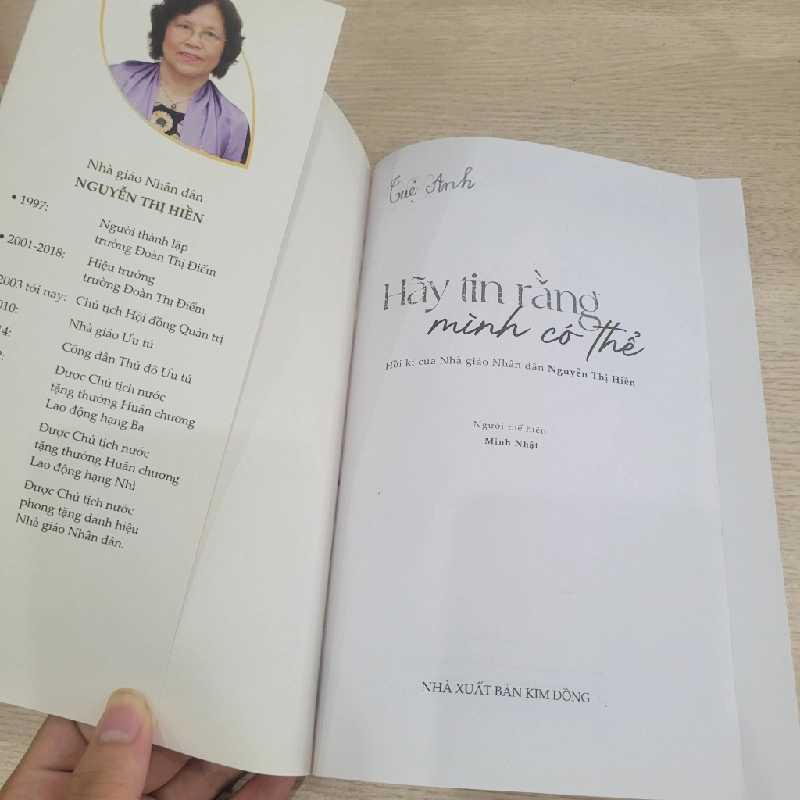 Nhà giáo Nhân dân
NGUYỄN THỊ HIỀN
• 1997:
Người thành lập
trường Đoàn Thị Điểm
• 2001-2018:
Hiệu trưởng
trường Đoàn Thị Điểm
2003 tới nay: Chủ tịch Hội đồng Quản trị
Nhà giáo Ưu tú
Công dân Thủ đô Ưu tú
Được Chủ tịch nước
tặng thưởng Huân chương
Lao động hạng Ba
Được Chủ tịch nước
tặng thưởng Huân chương
Lao động hạng Nhì
Được Chủ tịch nước
phong tặng danh hiệu
Nhà giáo Nhân dân.
Tuệ Anh
Hãy tin rằng
mình có thể
Hồi kí của Nhà giáo Nhân dân Nguyễn Thị Hiền
Người thể hiện:
Minh Nhật
NHÀ XUẤT BẢN KIM ĐỒNG